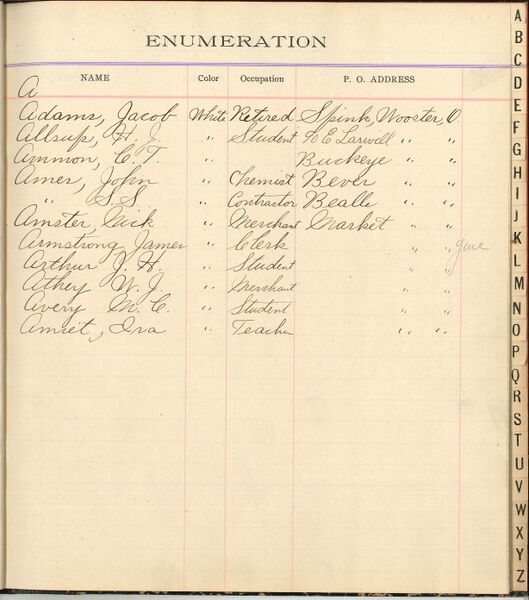 ENUMERATION
NAME Color Occupation P. O. ADDRESS
A
Adams, Jacob White Retired Spink, Wooster, O.
Allsup, H. J. " Student E Larwill " "
Ammon, C. T. " Buckeye " "
Ames, John " Chemist Bever " "
" S.S. " Contractor Beall " "
Amster, Nick " Merchant Market " "
Armstrong, James " Clerk " "
Arthur J. H. " Student " "
Athey W. J. " Merchant " "
Avery M. C. " Student " "
Amiet, Ira " Teacher " "
A
B
C
D
E
F
G
H
I
J
K
L
M
N
O
P
Q
R
S
T
U
V
W
X
Y
Z